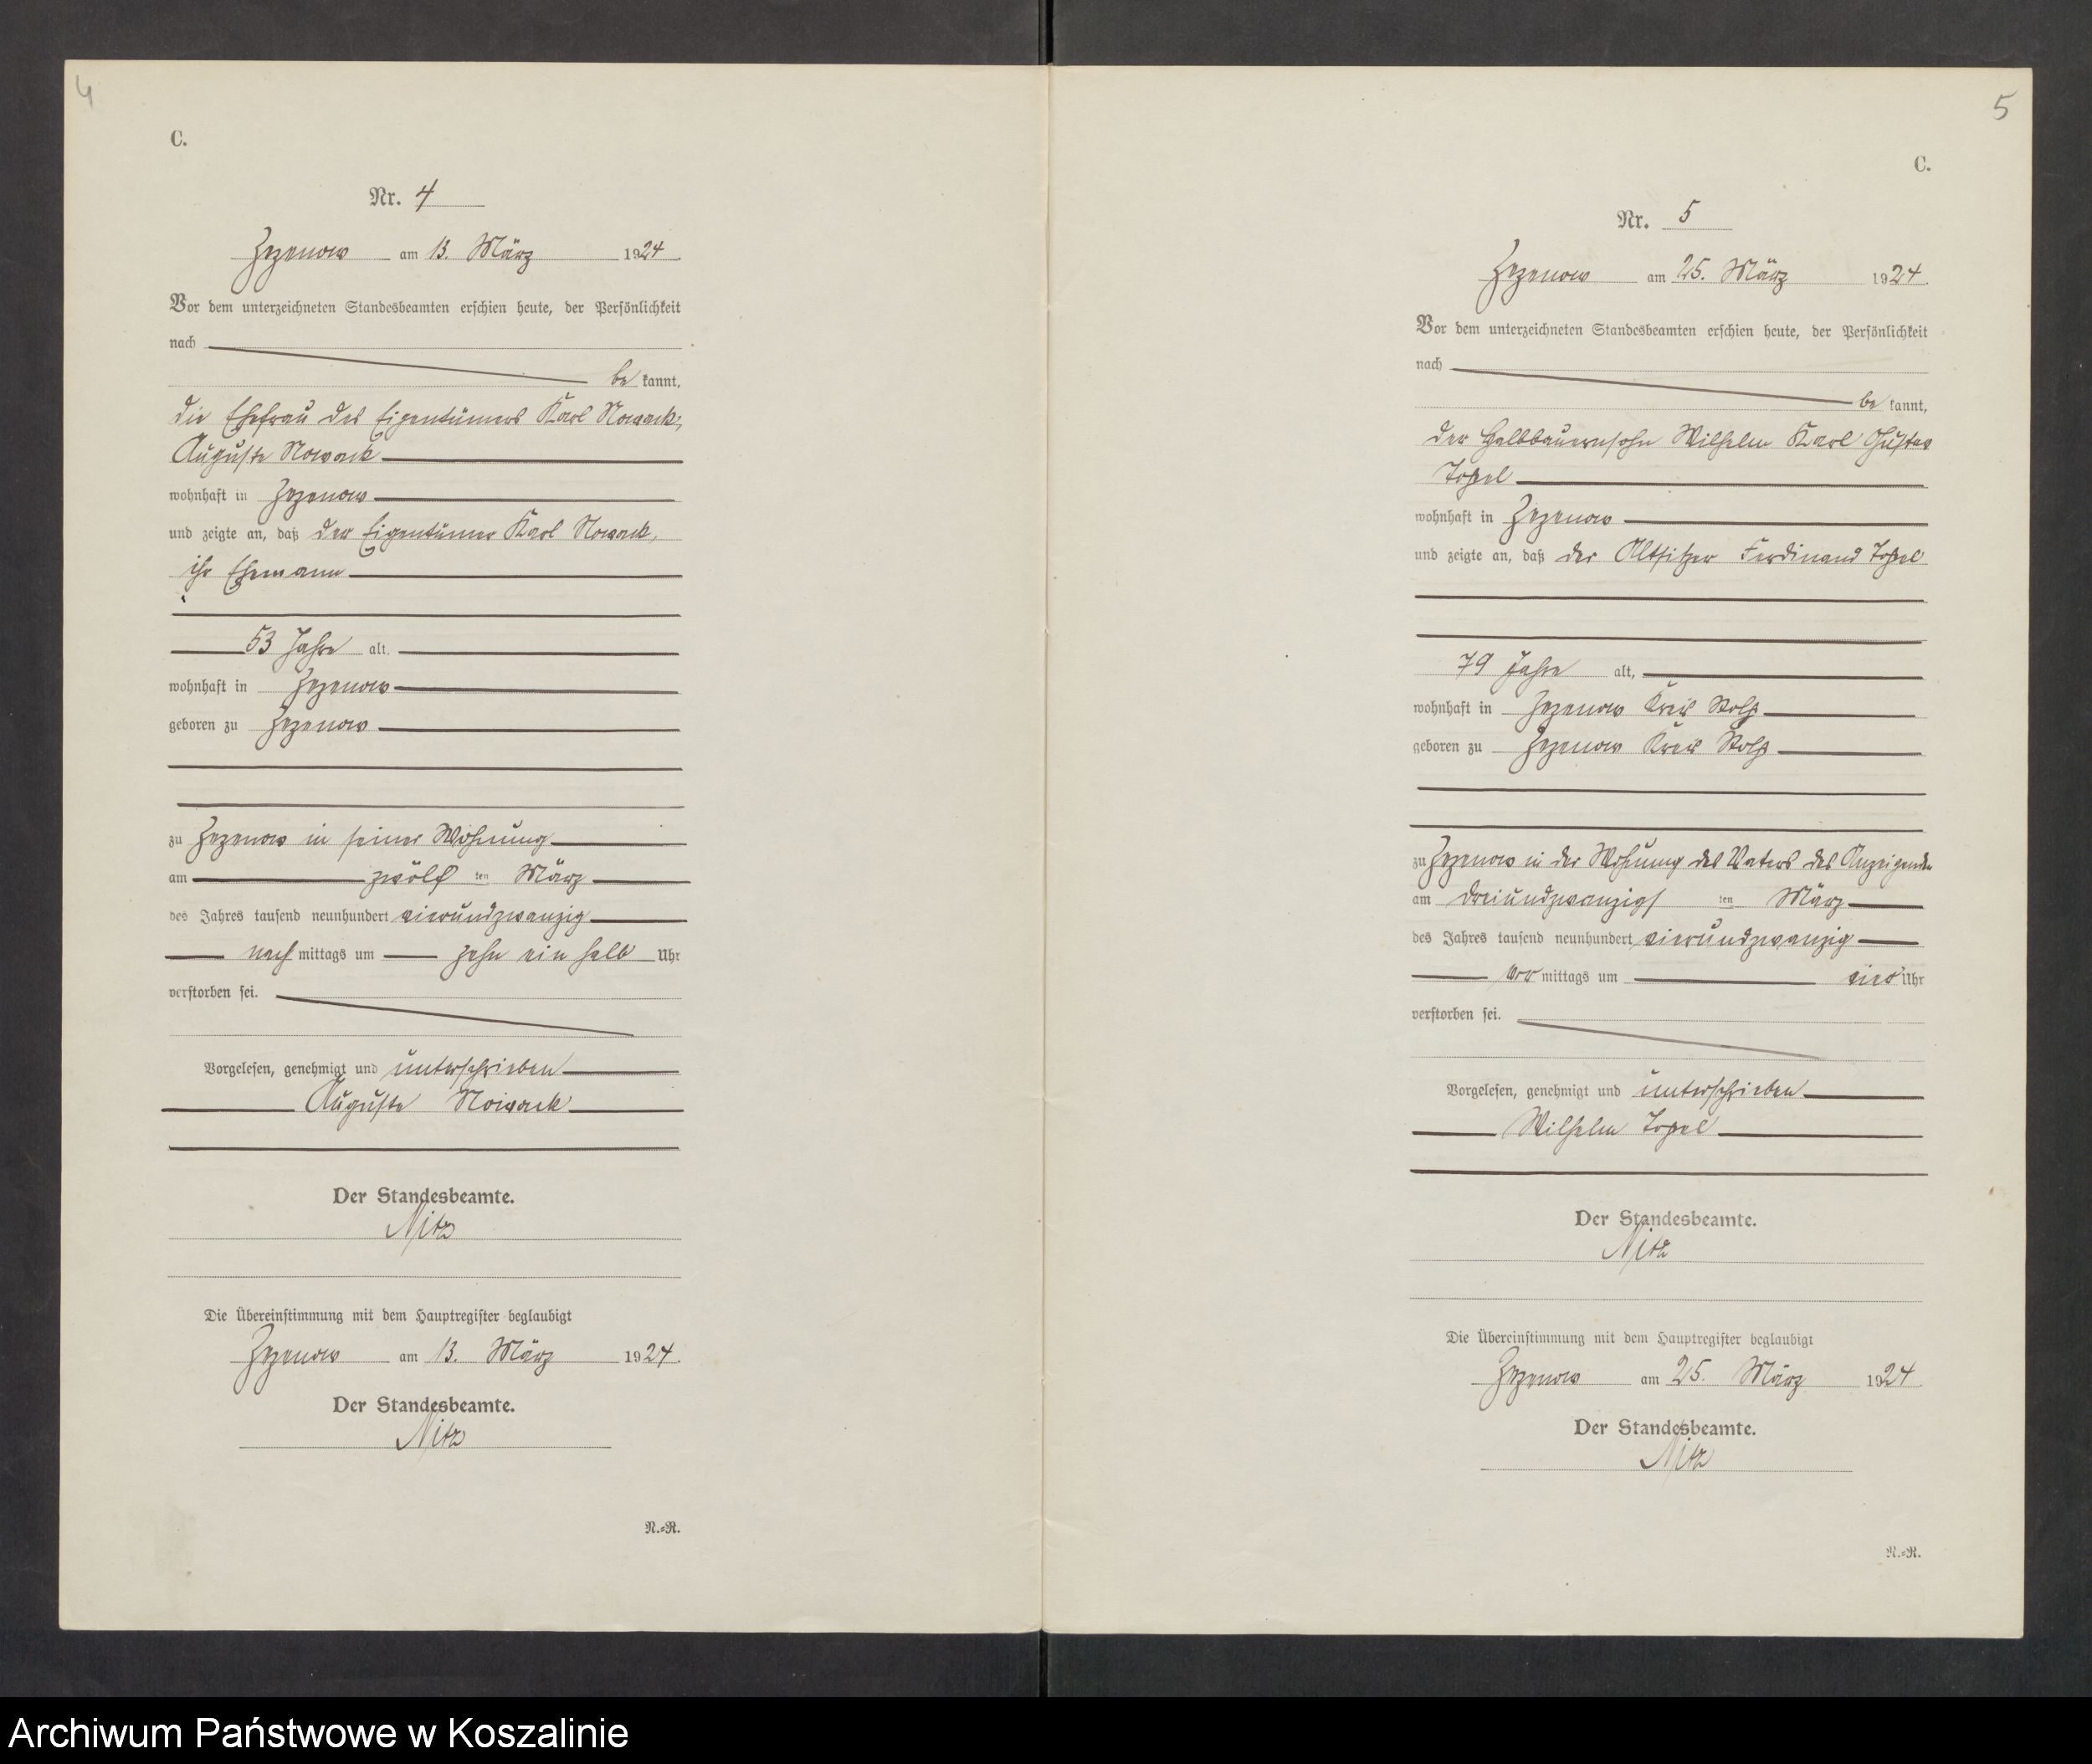 4
C.
Nr. 4
Zezenow am 13. März 1924.
Vor dem unterzeichneten Standesbeamten erschien heute, der Persönlichkeit
nach
be kannt,
die Ehefrau des Eigentümers Karl Nowack,
Auguste Nowack
wohnhaft in Zezenow
und zeigte an, daß der Eigentümer Karl Nowack,
ihr Ehemann
53 Jahre alt,
wohnhaft in Zezenow
geboren zu Zezenow
zu Zezenow in seiner Wohnung
am zwölf ten März
des Jahres tausend neunhundert vierundzwanzig
nach mittags um zehn ein halb Uhr
verstorben sei.
Vorgelesen, genehmigt und unterschrieben
Auguste Nowack
Der Standesbeamte.
Nitz
Die Übereinstimmung mit dem Hauptregister beglaubigt
Zezenow am 13. März 1924.
Der Standesbeamte.
Nitz
N.=R.
5
C.
Nr. 5
Zezenow am 25. März 1924.
Vor dem unterzeichneten Standesbeamten erschien heute, der Persönlichkeit
nach
be kannt,
der Halbbauernsohn Wilhelm Karl Gustav
Topel
wohnhaft in Zezenow
und zeigte an, daß der Altsitzer Ferdinand Topel
79 Jahre alt,
wohnhaft in Zezenow Kreis Stolp
geboren zu Zezenow Kreis Stolp
zu Zezenow in der Wohnung des Vaters des Anzeigenden
am dreiundzwanzigs ten März
des Jahres tausend neunhundert vierundzwanzig
vor mittags um vier Uhr
verstorben sei.
Vorgelesen, genehmigt und unterschrieben
Wilhelm Topel
Der Standesbeamte.
Nitz
Die Übereinstimmung mit dem Hauptregister beglaubigt
Zezenow am 25. März 1924.
Der Standesbeamte.
Nitz
N.=R.
Archiwum Państwowe w Koszalinie